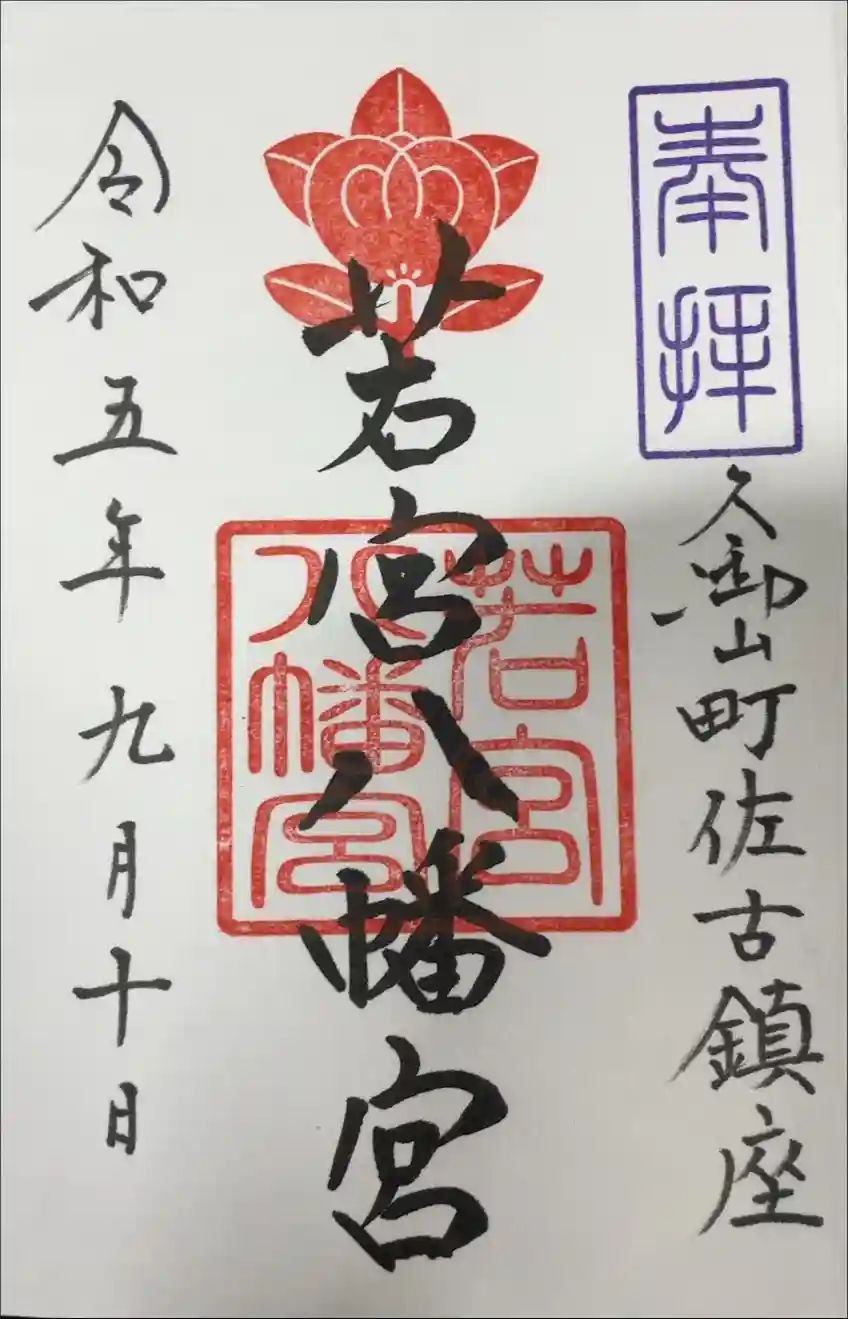 奉拝
久御山町佐古鎮座
若宮八幡宮
若宮
八幡宮
令和五年九月十日